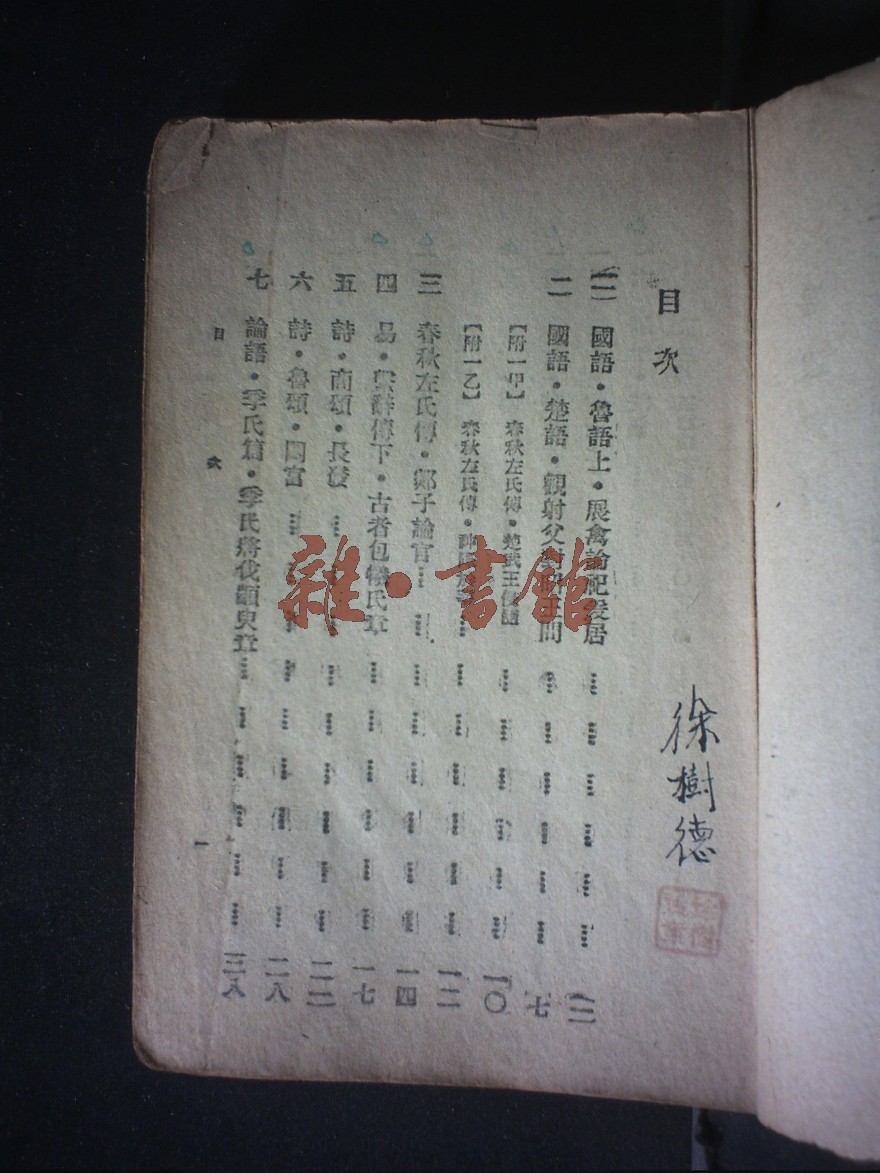 目次
徐樹德
一 國語・魯語上・展禽論祀爰居……………………
二 國語・楚語・觀射父對昭王問……………………七
【附一甲】 春秋左氏傳・楚武王侵隨……………………一〇
【附一乙】 春秋左氏傳・……………………一二
三 春秋左氏傳・郯子論官……………………一四
四 易・繫辭傳下・古者包犧氏章……………………一七
五 詩・商頌・長發……………………二二
六 詩・魯頌・閟宮……………………二八
七 論語・季氏篇・季氏將伐顓臾章……………………三八
目次
一
雜・書館